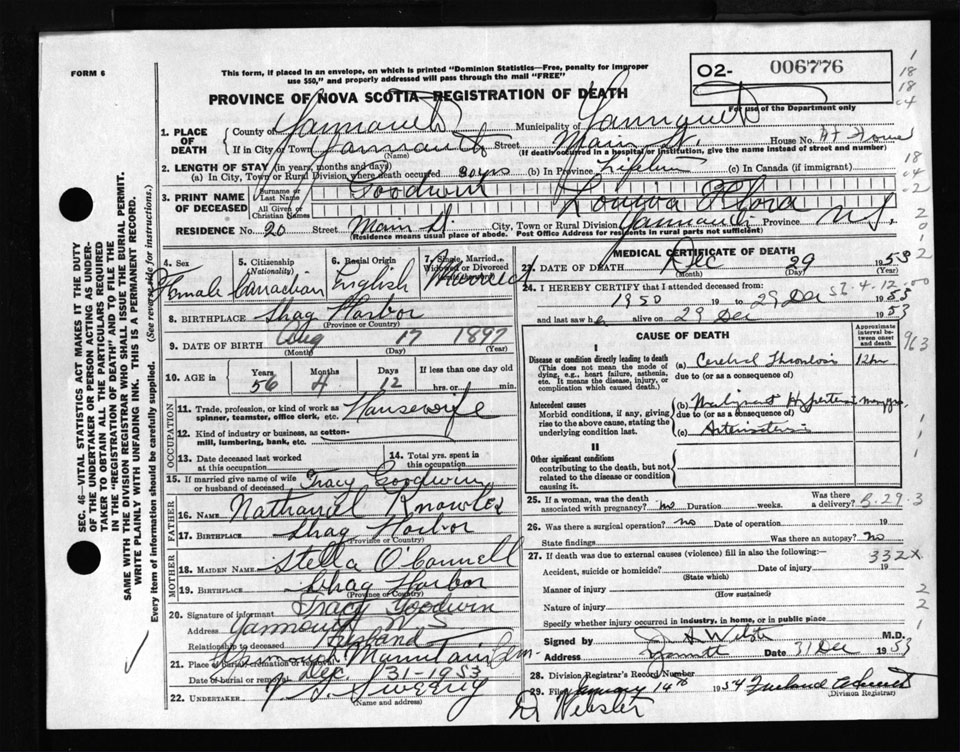 FORM 6
This form, if placed in an envelope, on which is printed "Dominion Statistics—Free, penalty for improper
use $50," and properly addressed will pass through the mail "FREE"
PROVINCE OF NOVA SCOTIA—REGISTRATION OF DEATH
02- 006776
For use of the Department only
1. PLACE OF DEATH
County of Yarmouth Municipality of
If in City or Town Yarmouth Street Main St. House No. At Home
(Name) (If death occurred in a hospital or institution, give the name instead of street and number)
2. LENGTH OF STAY (in years, months and days)
(a) In City, Town or Rural Division where death occurred (b) In Province Lifetime (c) In Canada (if immigrant)
3. PRINT NAME OF DECEASED
Surname or Last Name Goodwin
All Given or Christian Names Flora
RESIDENCE No. 20 Street Main St. City, Town or Rural Division Yarmouth Province N.S.
(Residence means usual place of abode. Post Office Address for residents in rural parts not sufficient)
4. Sex Female
5. Citizenship (Nationality) Canadian
6. Racial Origin English
7. Single, Married, Widowed or Divorced Married
8. BIRTHPLACE Shag Harbor
(Province or Country)
9. DATE OF BIRTH Aug 17 1897
(Month) (Day) (Year)
10. AGE in Years 56 Months 4 Days 12 If less than one day hrs. or min.
OCCUPATION
11. Trade, profession, or kind of work as spinner, teamster, office clerk, etc. Housewife
12. Kind of industry or business, as cotton-mill, lumbering, bank, etc.
13. Date deceased last worked at this occupation
14. Total yrs. spent in this occupation
15. If married give name of wife or husband of deceased Tracy Goodwin
FATHER
16. NAME Nathaniel Knowles
17. BIRTHPLACE Shag Harbor
(Province or Country)
MOTHER
18. MAIDEN NAME Stella O'Connell
19. BIRTHPLACE Shag Harbor
(Province or Country)
20. Signature of informant Tracy Goodwin
Address Yarmouth N S
Relationship to deceased Husband
21. Place of burial, cremation or removal Mountain Cem-
Date of burial or removal Dec. 31-1953
22. UNDERTAKER V S Sweeny
(Name and address)
MEDICAL CERTIFICATE OF DEATH
23. DATE OF DEATH Dec 29 1953
(Month) (Day) (Year)
24. I HEREBY CERTIFY that I attended deceased from:
1950 19 to 29 Dec 1953
and last saw h alive on 29 Dec 1953
CAUSE OF DEATH
Approximate interval between onset and death
I
Disease or condition directly leading to death
(This does not mean the mode of dying, e.g., heart failure, asthenia, etc. It means the disease, injury, or complication which caused death.
(a) Cerebral Thrombosis 12 hr
due to (or as a consequence of)
Antecedent causes
Morbid conditions, if any, giving rise to the above cause, stating the underlying condition last.
(b) Malignant Hypertension many yrs.
due to (or as a consequence of)
(c)
II
Other significant conditions
contributing to the death, but not related to the disease or condition causing it.
25. If a woman, was the death associated with pregnancy? no Duration weeks. Was there a delivery?
26. Was there a surgical operation? no Date of operation 19
State findings Was there an autopsy? no
27. If death was due to external causes (violence) fill in also the following:—
332X
Accident, suicide or homicide? Date of injury 19
(State which)
Manner of injury
(How sustained)
Nature of injury
Specify whether injury occurred in industry, in home, or in public place
Signed by M.D.
Address Date 31 Dec 1953
28. Division Registrar's Record Number
29. Filed January 14th 1954
(Division Registrar)
Dr Webster
SEC. 46—VITAL STATISTICS ACT MAKES IT THE DUTY
OF THE UNDERTAKER OR PERSON ACTING AS UNDER-
TAKER TO OBTAIN ALL THE PARTICULARS REQUIRED
IN THE "REGISTRATION OF DEATH" AND TO FILE THE
SAME WITH THE DIVISION REGISTRAR WHO SHALL ISSUE THE BURIAL PERMIT.
WRITE PLAINLY WITH UNFADING INK. THIS IS A PERMANENT RECORD.
Every item of information should be carefully supplied. (See reverse side for instructions.)